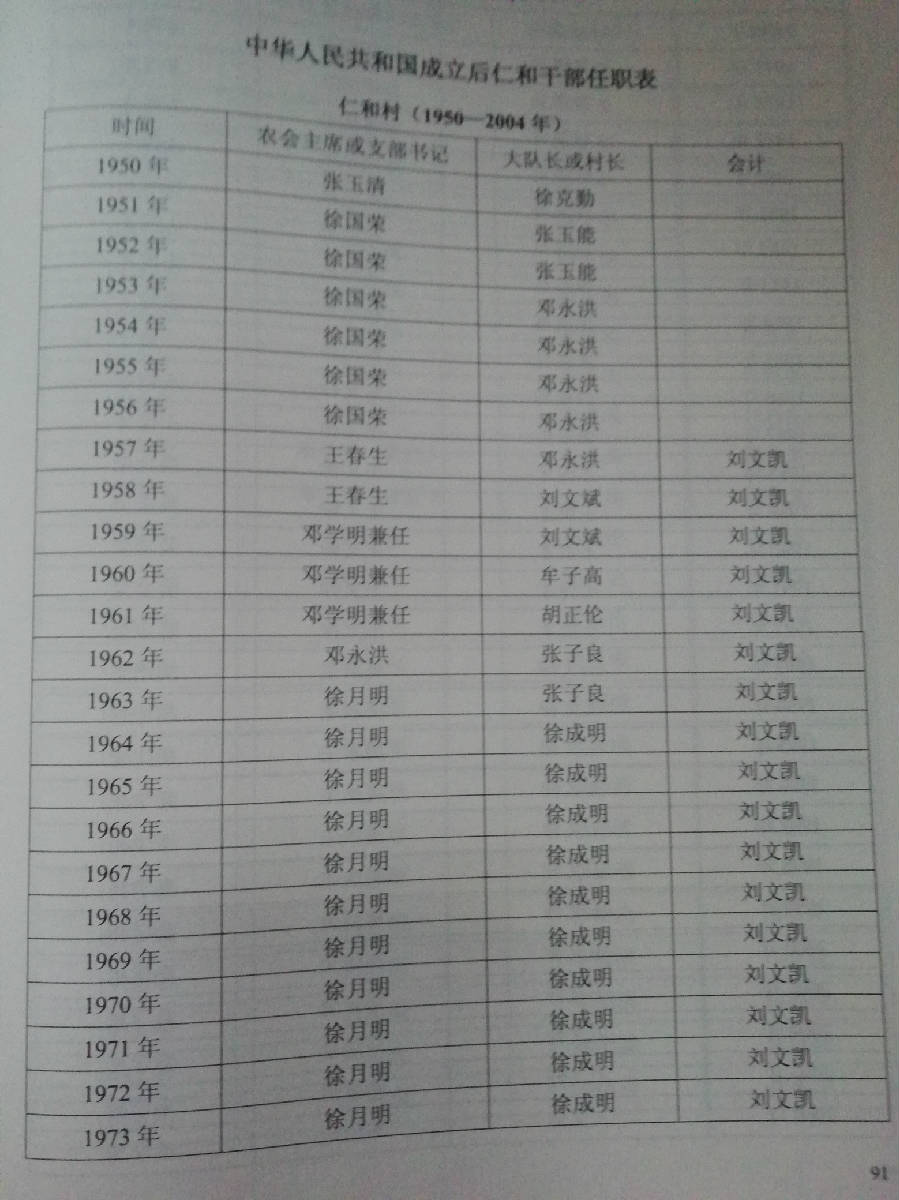 中华人民共和国成立后仁和干部任职表
仁和村（1950—2004 年）
时间 农会主席或支部书记 大队长或村长 会计
1950 年 张玉清 徐克勤
1951 年 徐国荣 张玉能
1952 年 徐国荣 张玉能
1953 年 徐国荣 邓永洪
1954 年 徐国荣 邓永洪
1955 年 徐国荣 邓永洪
1956 年 徐国荣 邓永洪
1957 年 王春生 邓永洪 刘文凯
1958 年 王春生 刘文斌 刘文凯
1959 年 邓学明兼任 刘文斌 刘文凯
1960 年 邓学明兼任 牟子高 刘文凯
1961 年 邓学明兼任 胡正伦 刘文凯
1962 年 邓永洪 张子良 刘文凯
1963 年 徐月明 张子良 刘文凯
1964 年 徐月明 徐成明 刘文凯
1965 年 徐月明 徐成明 刘文凯
1966 年 徐月明 徐成明 刘文凯
1967 年 徐月明 徐成明 刘文凯
1968 年 徐月明 徐成明 刘文凯
1969 年 徐月明 徐成明 刘文凯
1970 年 徐月明 徐成明 刘文凯
1971 年 徐月明 徐成明 刘文凯
1972 年 徐月明 徐成明 刘文凯
1973 年 徐月明 徐成明 刘文凯
91